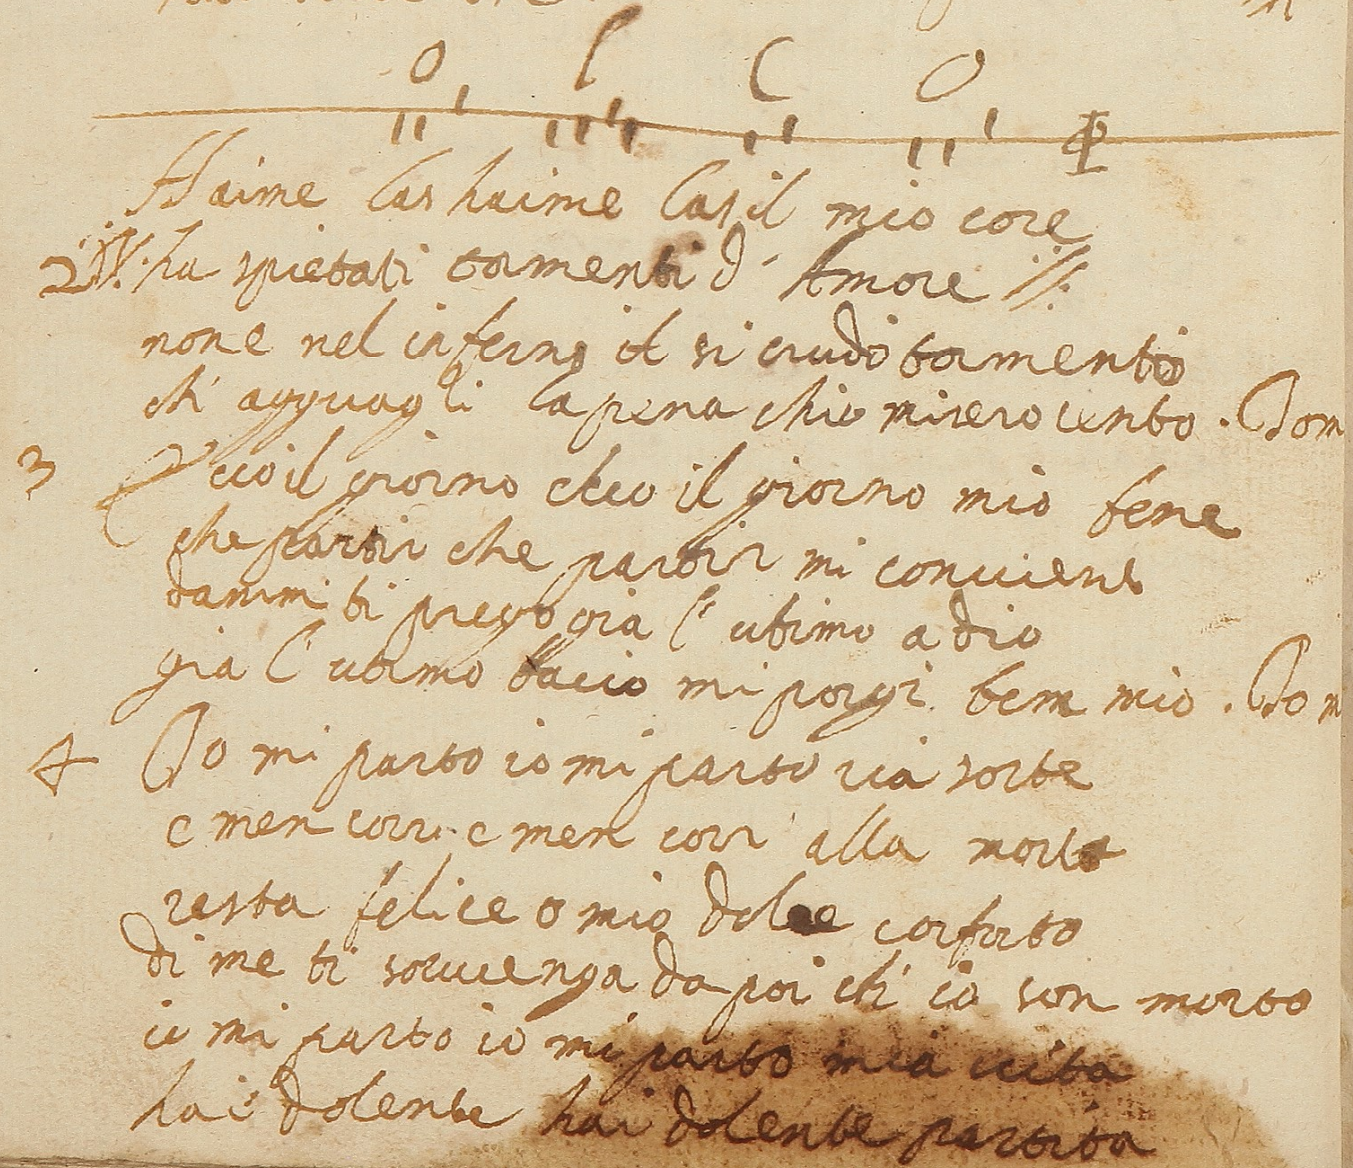 O C C O
Haime las haime las il mio core
2 ha spietati tormenti d'Amore
none nel inferno il si crudo tormento
ch'agguagli la pena chio misero cento. Dom
3 Ecco il giorno ecco il giorno mio bene
che partir che partir mi conuiene
dammi ti prego gia l'utimo a dio
gia l'utimo bacio mi porgi ben mio. Io m
4 Io mi parto io mi parto ria sorte
e men corr e men corr alla morte
resta felice o mio dolce conforto
di me ti souuenga da poi ch'io son morto
io mi parto io mi parto mia uita
hai dolente hai dolente partita